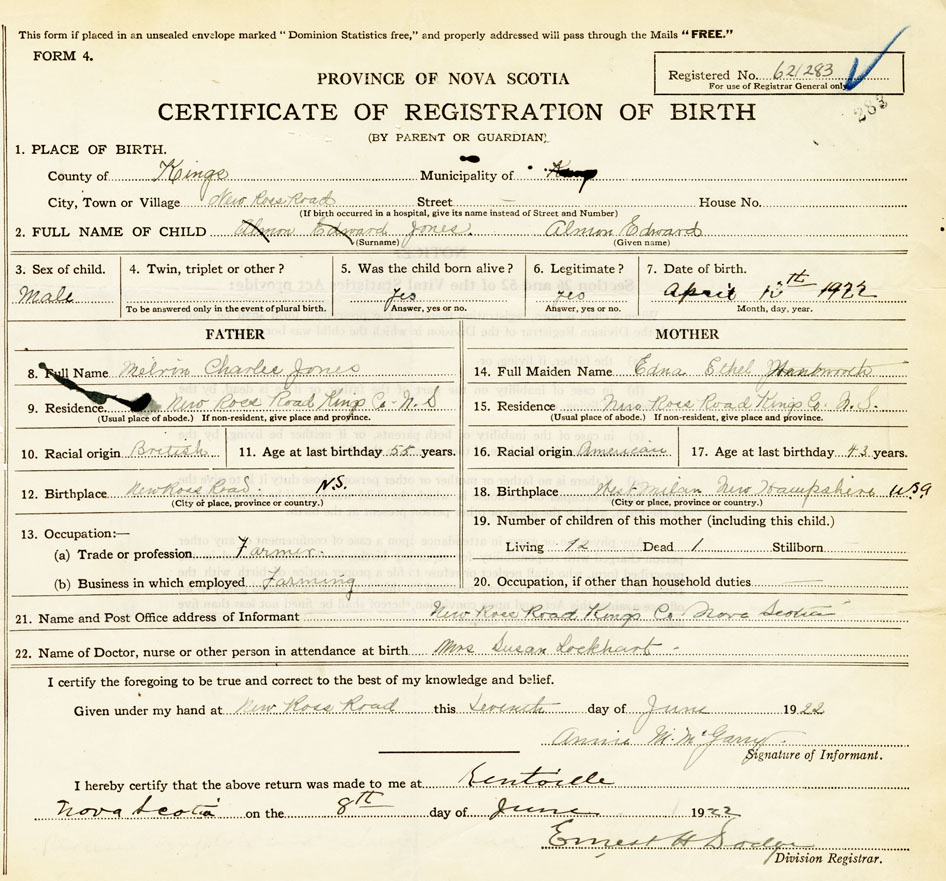 This form if placed in an unsealed envelope marked "Dominion Statistics free," and properly addressed will pass through the Mails "FREE."
FORM 4.
Registered No. 621283
For use of Registrar General only
283
PROVINCE OF NOVA SCOTIA
CERTIFICATE OF REGISTRATION OF BIRTH
(BY PARENT OR GUARDIAN)
1. PLACE OF BIRTH.
County of Kings Municipality of
City, Town or Village New Ross Road Street — House No.
(If birth occurred in a hospital, give its name instead of Street and Number)
2. FULL NAME OF CHILD Almon Edward Jones. Almon Edward
(Surname) (Given name)
3. Sex of child. 4. Twin, triplet or other? 5. Was the child born alive? 6. Legitimate? 7. Date of birth.
Male yes yes April th 1922
To be answered only in the event of plural birth. Answer, yes or no. Answer, yes or no. Month, day, year.
FATHER MOTHER
8. Full Name Melvin Charles Jones 14. Full Maiden Name Edna Ethel
9. Residence. New Ross Road Kings Co. N.S 15. Residence New Ross Road Kings Co. N.S.
(Usual place of abode.) If non-resident, give place and province. (Usual place of abode.) If non-resident, give place and province.
10. Racial origin British 11. Age at last birthday 55 years. 16. Racial origin American 17. Age at last birthday 43 years.
12. Birthplace New Ross Road. N.S. 18. Birthplace West Milan New Hampshire USA
(City or place, province or country.) (City or place, province or country.)
13. Occupation:— 19. Number of children of this mother (including this child.)
(a) Trade or profession Farmer. Living 12 Dead 1 Stillborn
(b) Business in which employed Farming 20. Occupation, if other than household duties
21. Name and Post Office address of Informant New Ross Road Kings Co. Nova Scotia
22. Name of Doctor, nurse or other person in attendance at birth Mrs Susan Lockhart
I certify the foregoing to be true and correct to the best of my knowledge and belief.
Given under my hand at New Ross Road this Seventh day of June 1922
Annie M. McGarry.
Signature of Informant.
I hereby certify that the above return was made to me at Kentville
Nova Scotia on the 8th day of June 1922
Ernest H Dodge
Division Registrar.